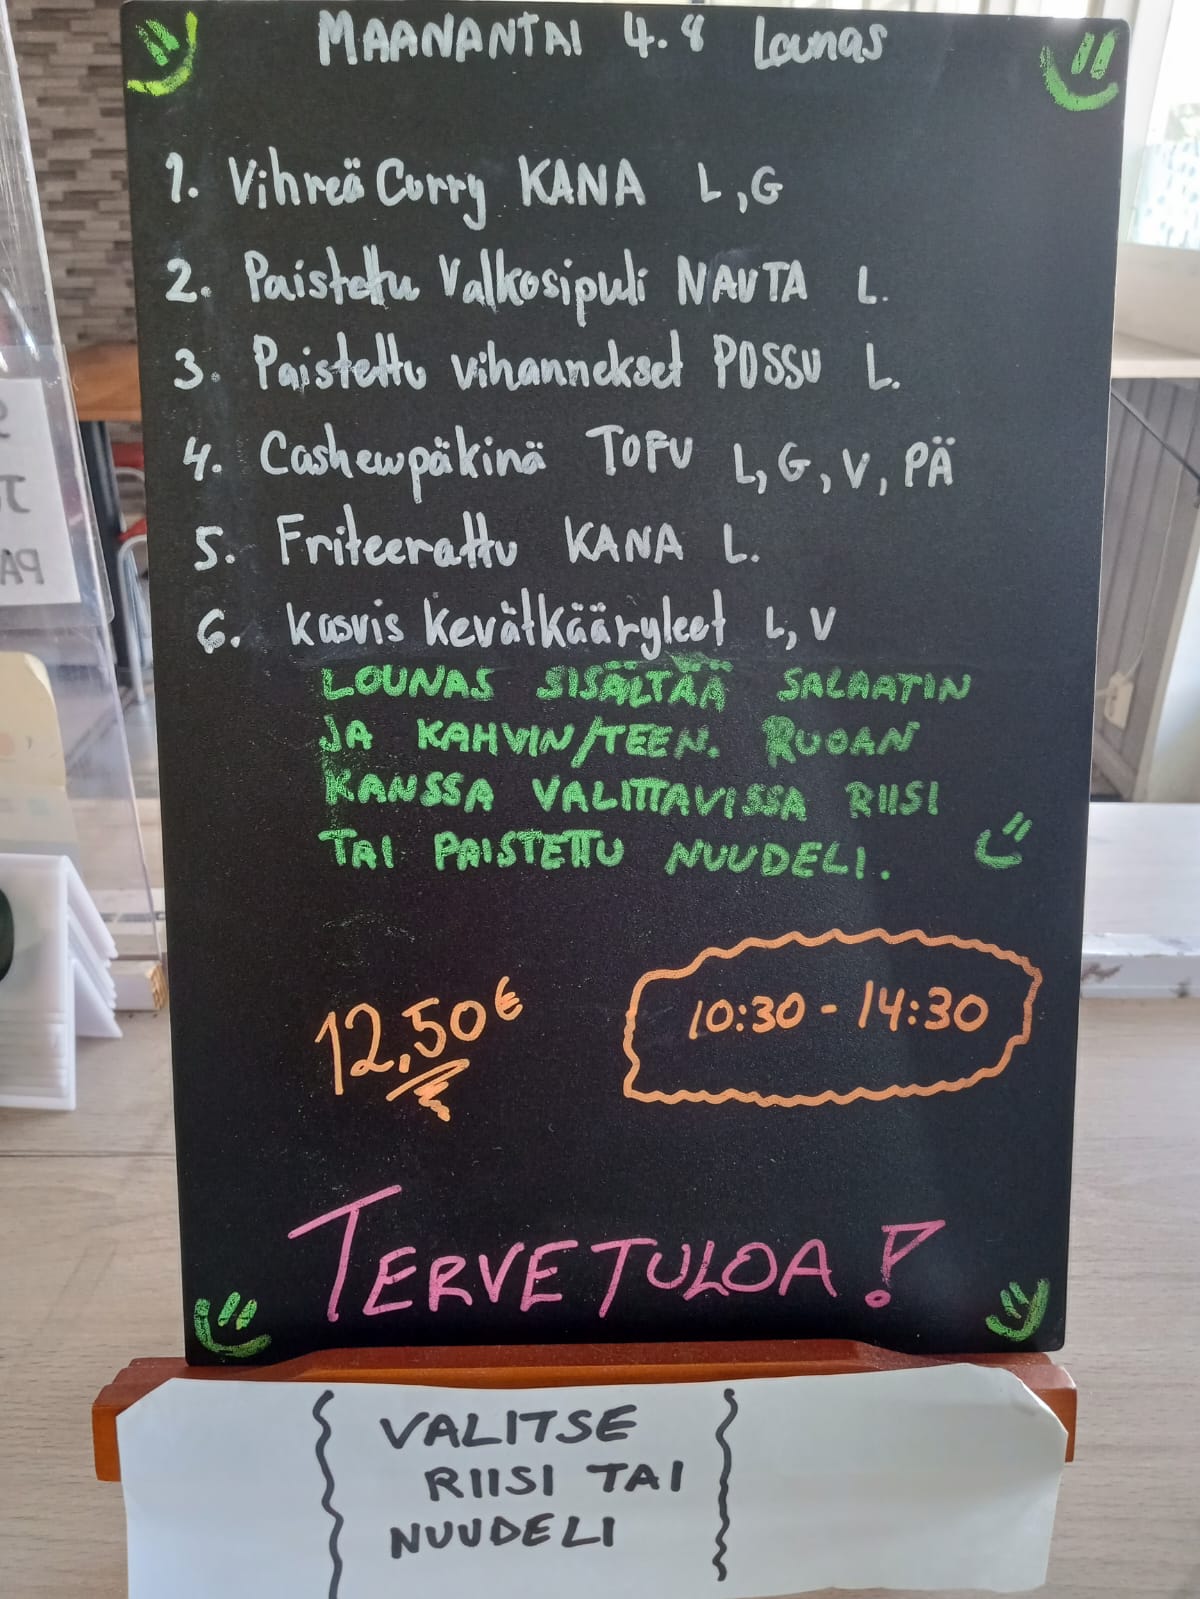 MAANANTAI 4.8 Lounas
1. Vihreä Curry KANA L,G
2. Paistettu Valkosipuli NAUTA L.
3. Paistettu vihannekset POSSU L.
4. Cashewpäkinä TOFU L,G,V,PÄ
5. Friteerattu KANA L.
6. kasvis kevätkääryleet L,V
LOUNAS SISÄLTÄÄ SALAATIN
JA KAHVIN/TEEN. RUOAN
KANSSA VALITTAVISSA RIISI
TAI PAISTETTU NUUDELI.
12,50€
10:30 - 14:30
TERVETULOA!
VALITSE
RIISI TAI
NUUDELI